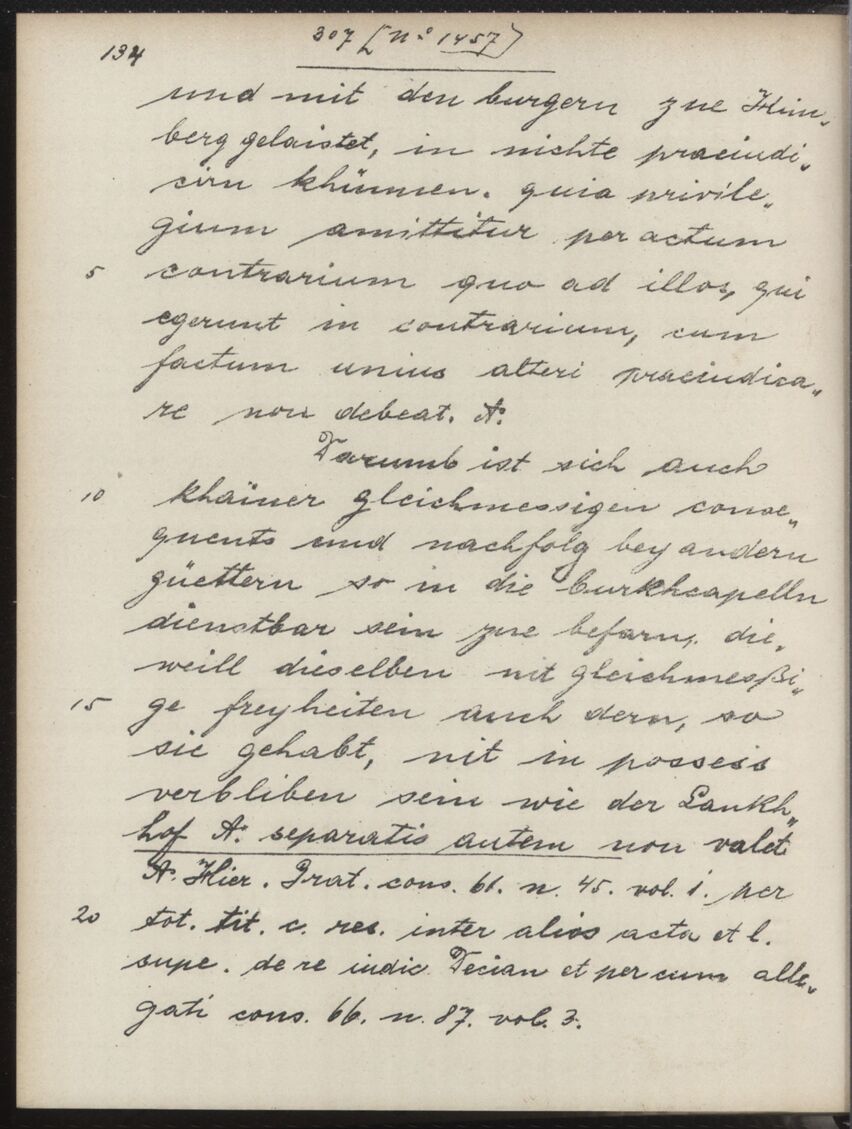 134
307 [Nº 1457]
und mit den burgern zue Him„
berg gelaistet, in nichte praeiudi„
cirn khünnen. quia privile„
gium amittitur per actum
5 contrarium quo ad illos, qui
egerunt in contrarium, cum
factum unius alteri praeiudica„
re non debeat. A:
Darumb ist sich auch
10 khainer gleichmessigen conse„
quents und nachfolg bey andern
güettern so in die burkhcapelln
dienstbar sein zue befarn, die„
weill dieselben nit gleichmeßi„
15 ge freyheiten auch dern, so
sie gehabt, nit in possess
verbliben sein wie der Lankh„
hof A: separatis autem non valet
A. Hier. Prat. cons. 61. n. 45. vol. 1. per
20 tot. tit. c. res. inter alios acta et l.
supe. de re iudic Decian et per eum alle„
gati cons. 66. n. 87. vol. 3.